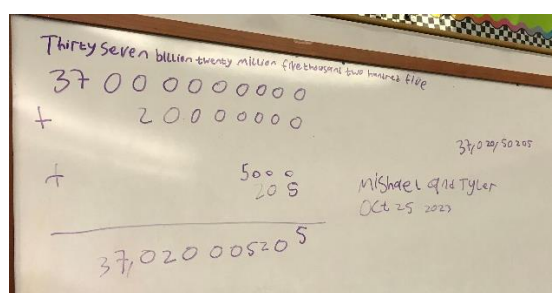 Thirty Seven billion twenty million five thousand two hundred five
37000000000
+ 20000000
37,020,50205
+ 5000
205
Mishael and Tyler
Oct 25 2023
37,020005205